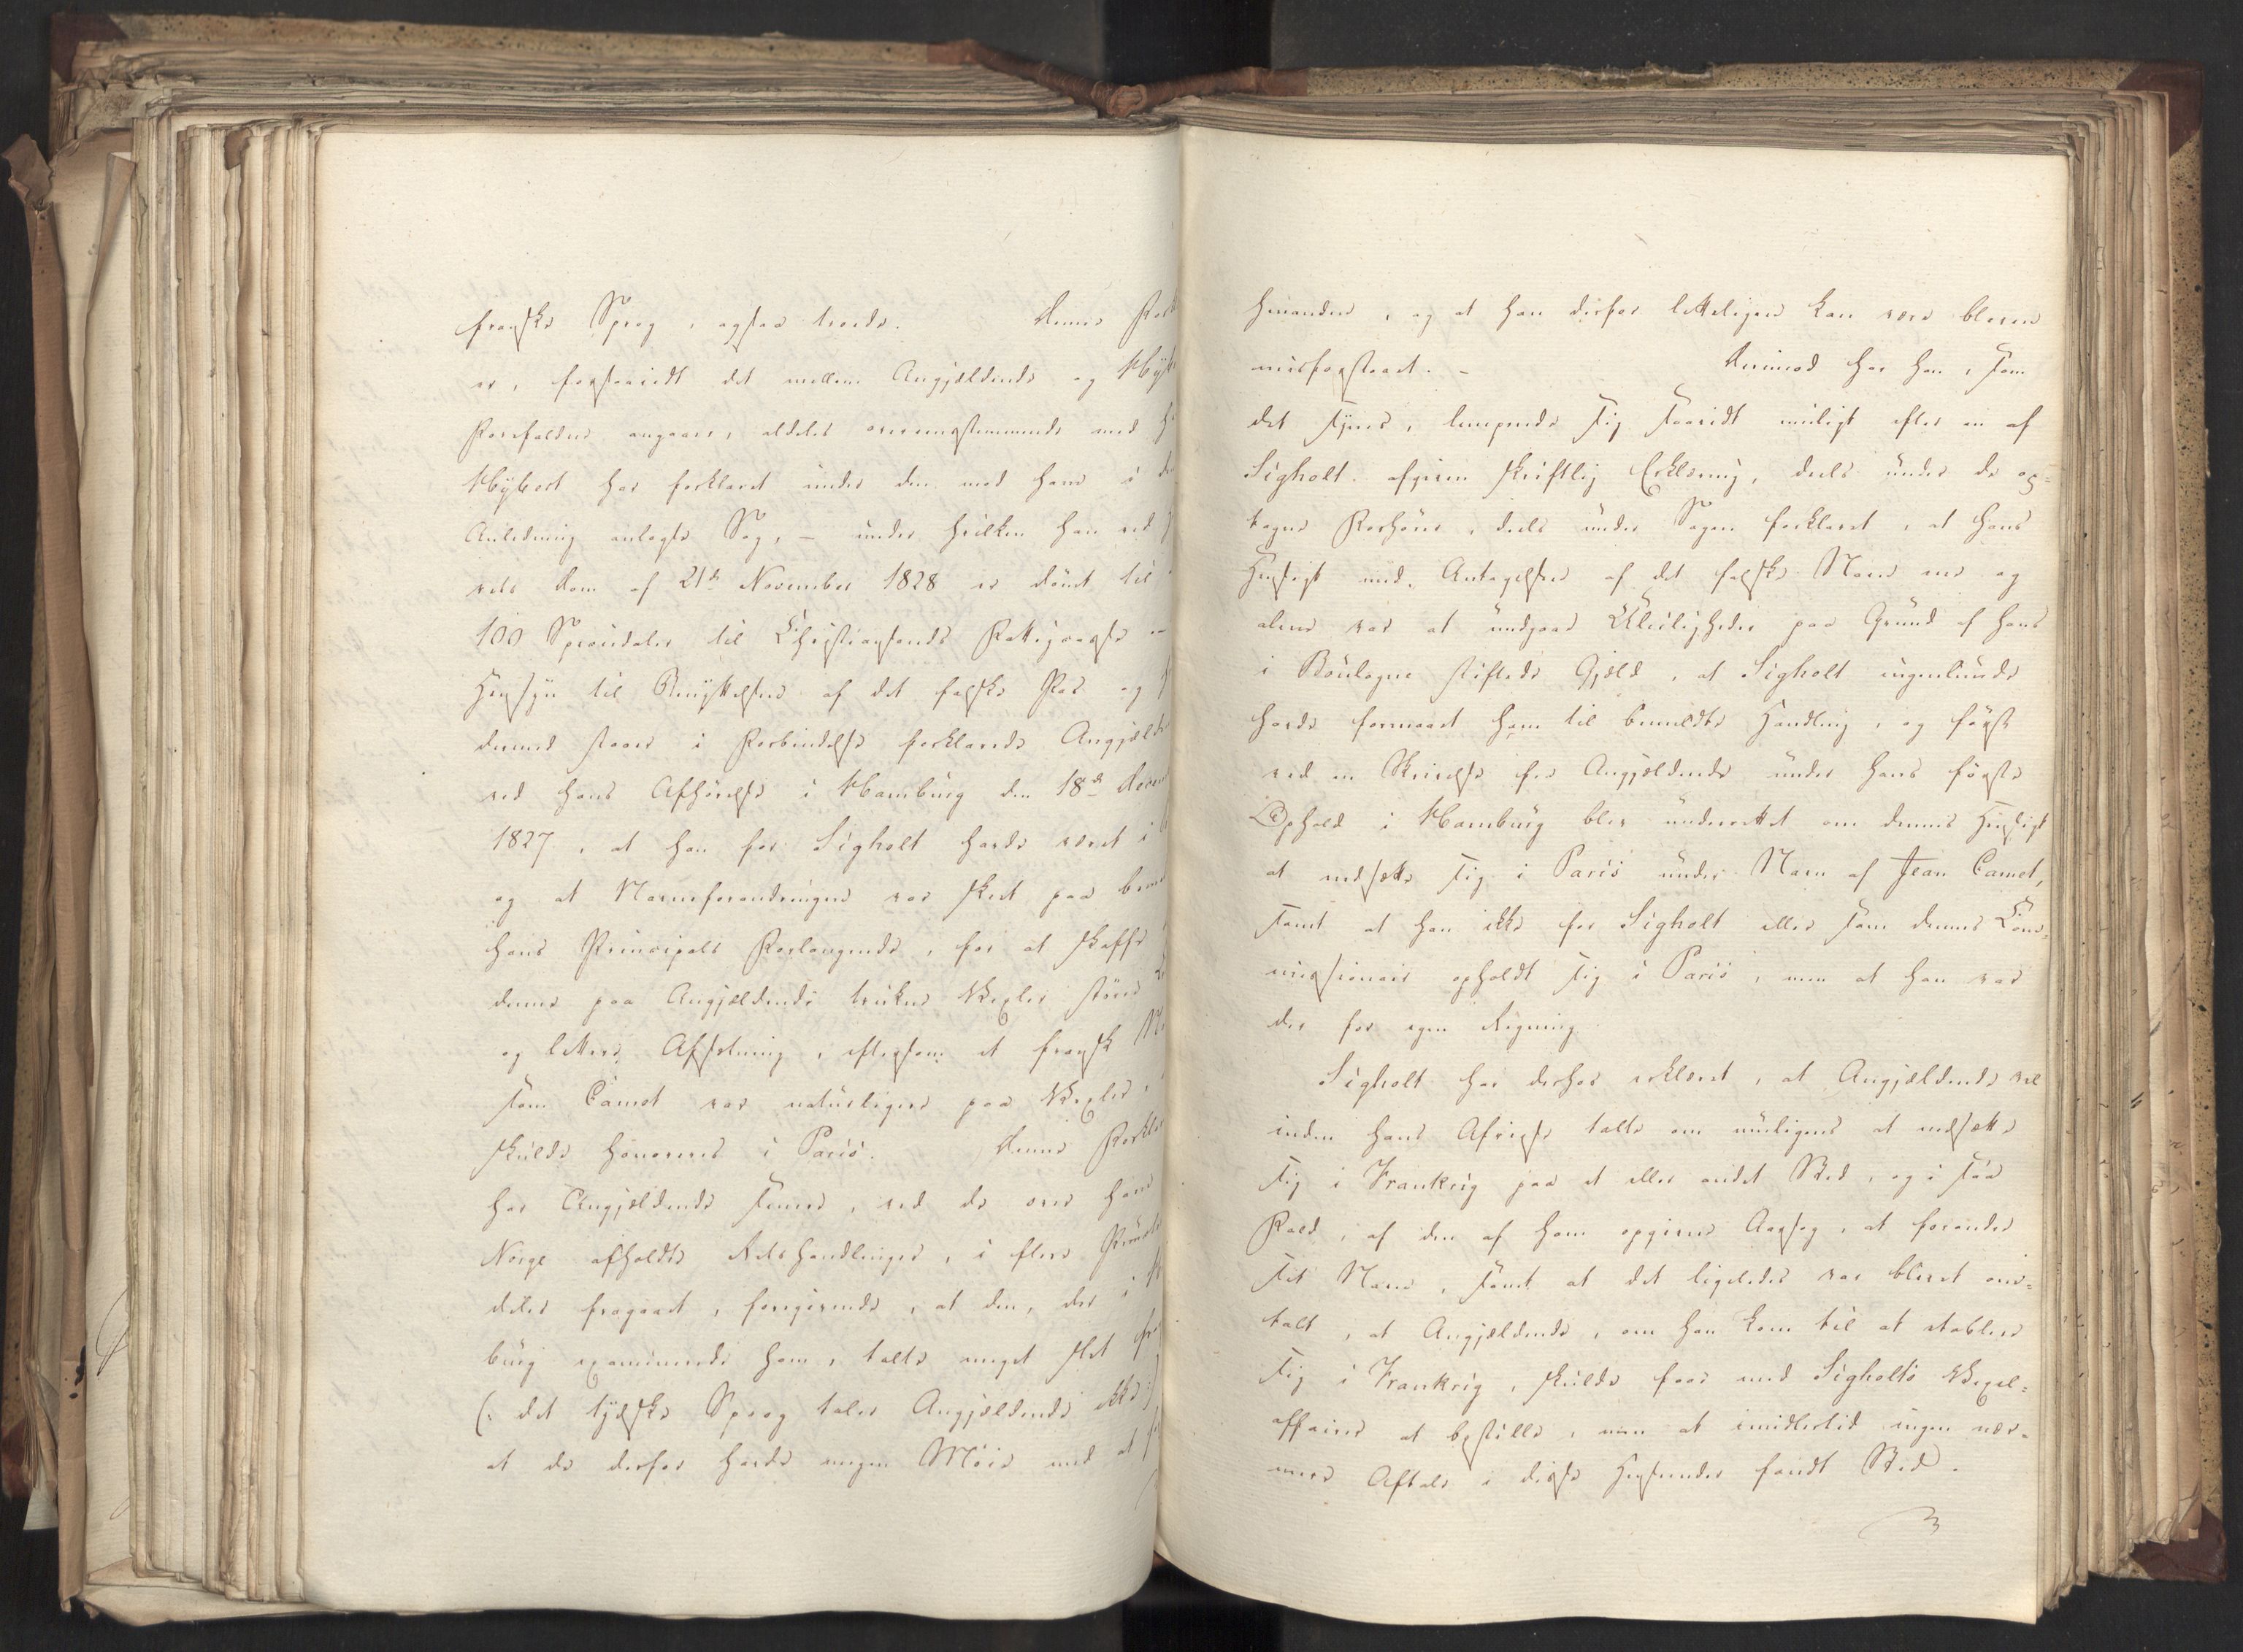 franske Sprog, ogsaa troede. Denne For
er, forsaavidt det mellem Angjældende og Hÿb
Forefaldne angaaer, aldeles overeensstemmende med h
Hÿbert har forklaret under den mod ham i de
Anledning anlagte Sag, – under hvilken han ved H
rets Dom af 21de November 1828 er dömt til
100 Speciedaler til Christiansands Fattigcasse
Hensyn til Benyttelsen af det falske Pas og
dermed staaer i Forbindelse forklarede Angjælde
ved hans Afhörelse i Hamburg den 18de Decem
1827, at han for Sigholt havde været i
og at Navneforandringen var skeet paa bem
hans Principals Forlangende, for at skaffe
denne paa Angjældende trukne Vexler större
og lettere Afsætning, eftersom et fransk N
som Camet var naturligere paa Vexler,
skulde honoreres i Paris. Denne Forkla
har Angjældende senere, ved de over ham
Norge afholdte Retshandlinger, i flere Punkte
deles fragaaet, foregivende, at den, der i H
burg examinerede ham, talte meget slet fra
(: det tydske Sprog taler Angjældende ikke :)
at de derfor havde megen Möie med at f
hinanden, og at han derfor letteligen kan være bleven
misforstaaet. – Derimod har han, som
det synes, lempende sig saavidt muligt efter en af
Sigholt afgiven skriftlig Erklæring, deels under de op-
tagne Forhörer, deels under Sagen forklaret, at hans
Hensigt med Antagelsen af det falske Navn ene og
alene var at undgaae Uleiligheder paa Grund af hans
i Boulogne stiftede Gjæld, at Sigholt ingenlunde
havde formaaet ham til bemeldte Handling, og först
ved en Skrivelse fra Angjældende under hans förste
Ophold i Hamburg blev underrettet om dennes Hensigt
at nedsætte sig i Paris under Navn af Jean Camet,
samt at han ikke for Sigholt eller som dennes Com-
missionair opholdt sig i Paris, men at han var
der for egen Regning.
Sigholt har derhos erklæret, at Angjældende vel
inden hans Afreise talte om muligens at nedsætte
sig i Frankrig paa et eller andet Sted, og i saa
Fald, af den af ham opgivne Aarsag, at forandre
sit Navn, samt at det ligeledes var blevet om-
talt, at Angjældende, om han kom til at etablere
sig i Frankrig, skulde faae med Sigholts Vexel-
affairer at bestille, men at imidlertid ingen nær-
mere Aftale i disse Henseender fandt Sted.